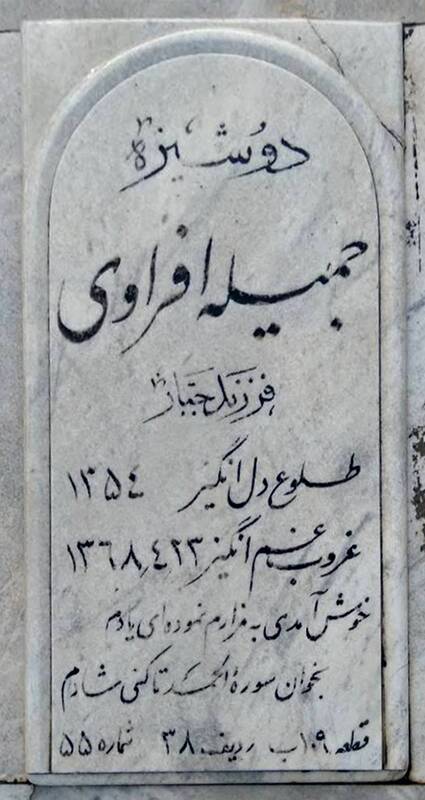 دوشیزه
جمیله افراوی
فرزند جبار
طلوع دل انگیز ۱۳۵٤
غروب غم انگیز ۱۳٦۸٫٤٫۲۳
خوش آمدی به مزارم نموده‌ای یادم
بخوان سورهٔ الحمد تا کنی شادم
قطعه ۱۰۹ب ردیف ۳۸ شماره ۵۵